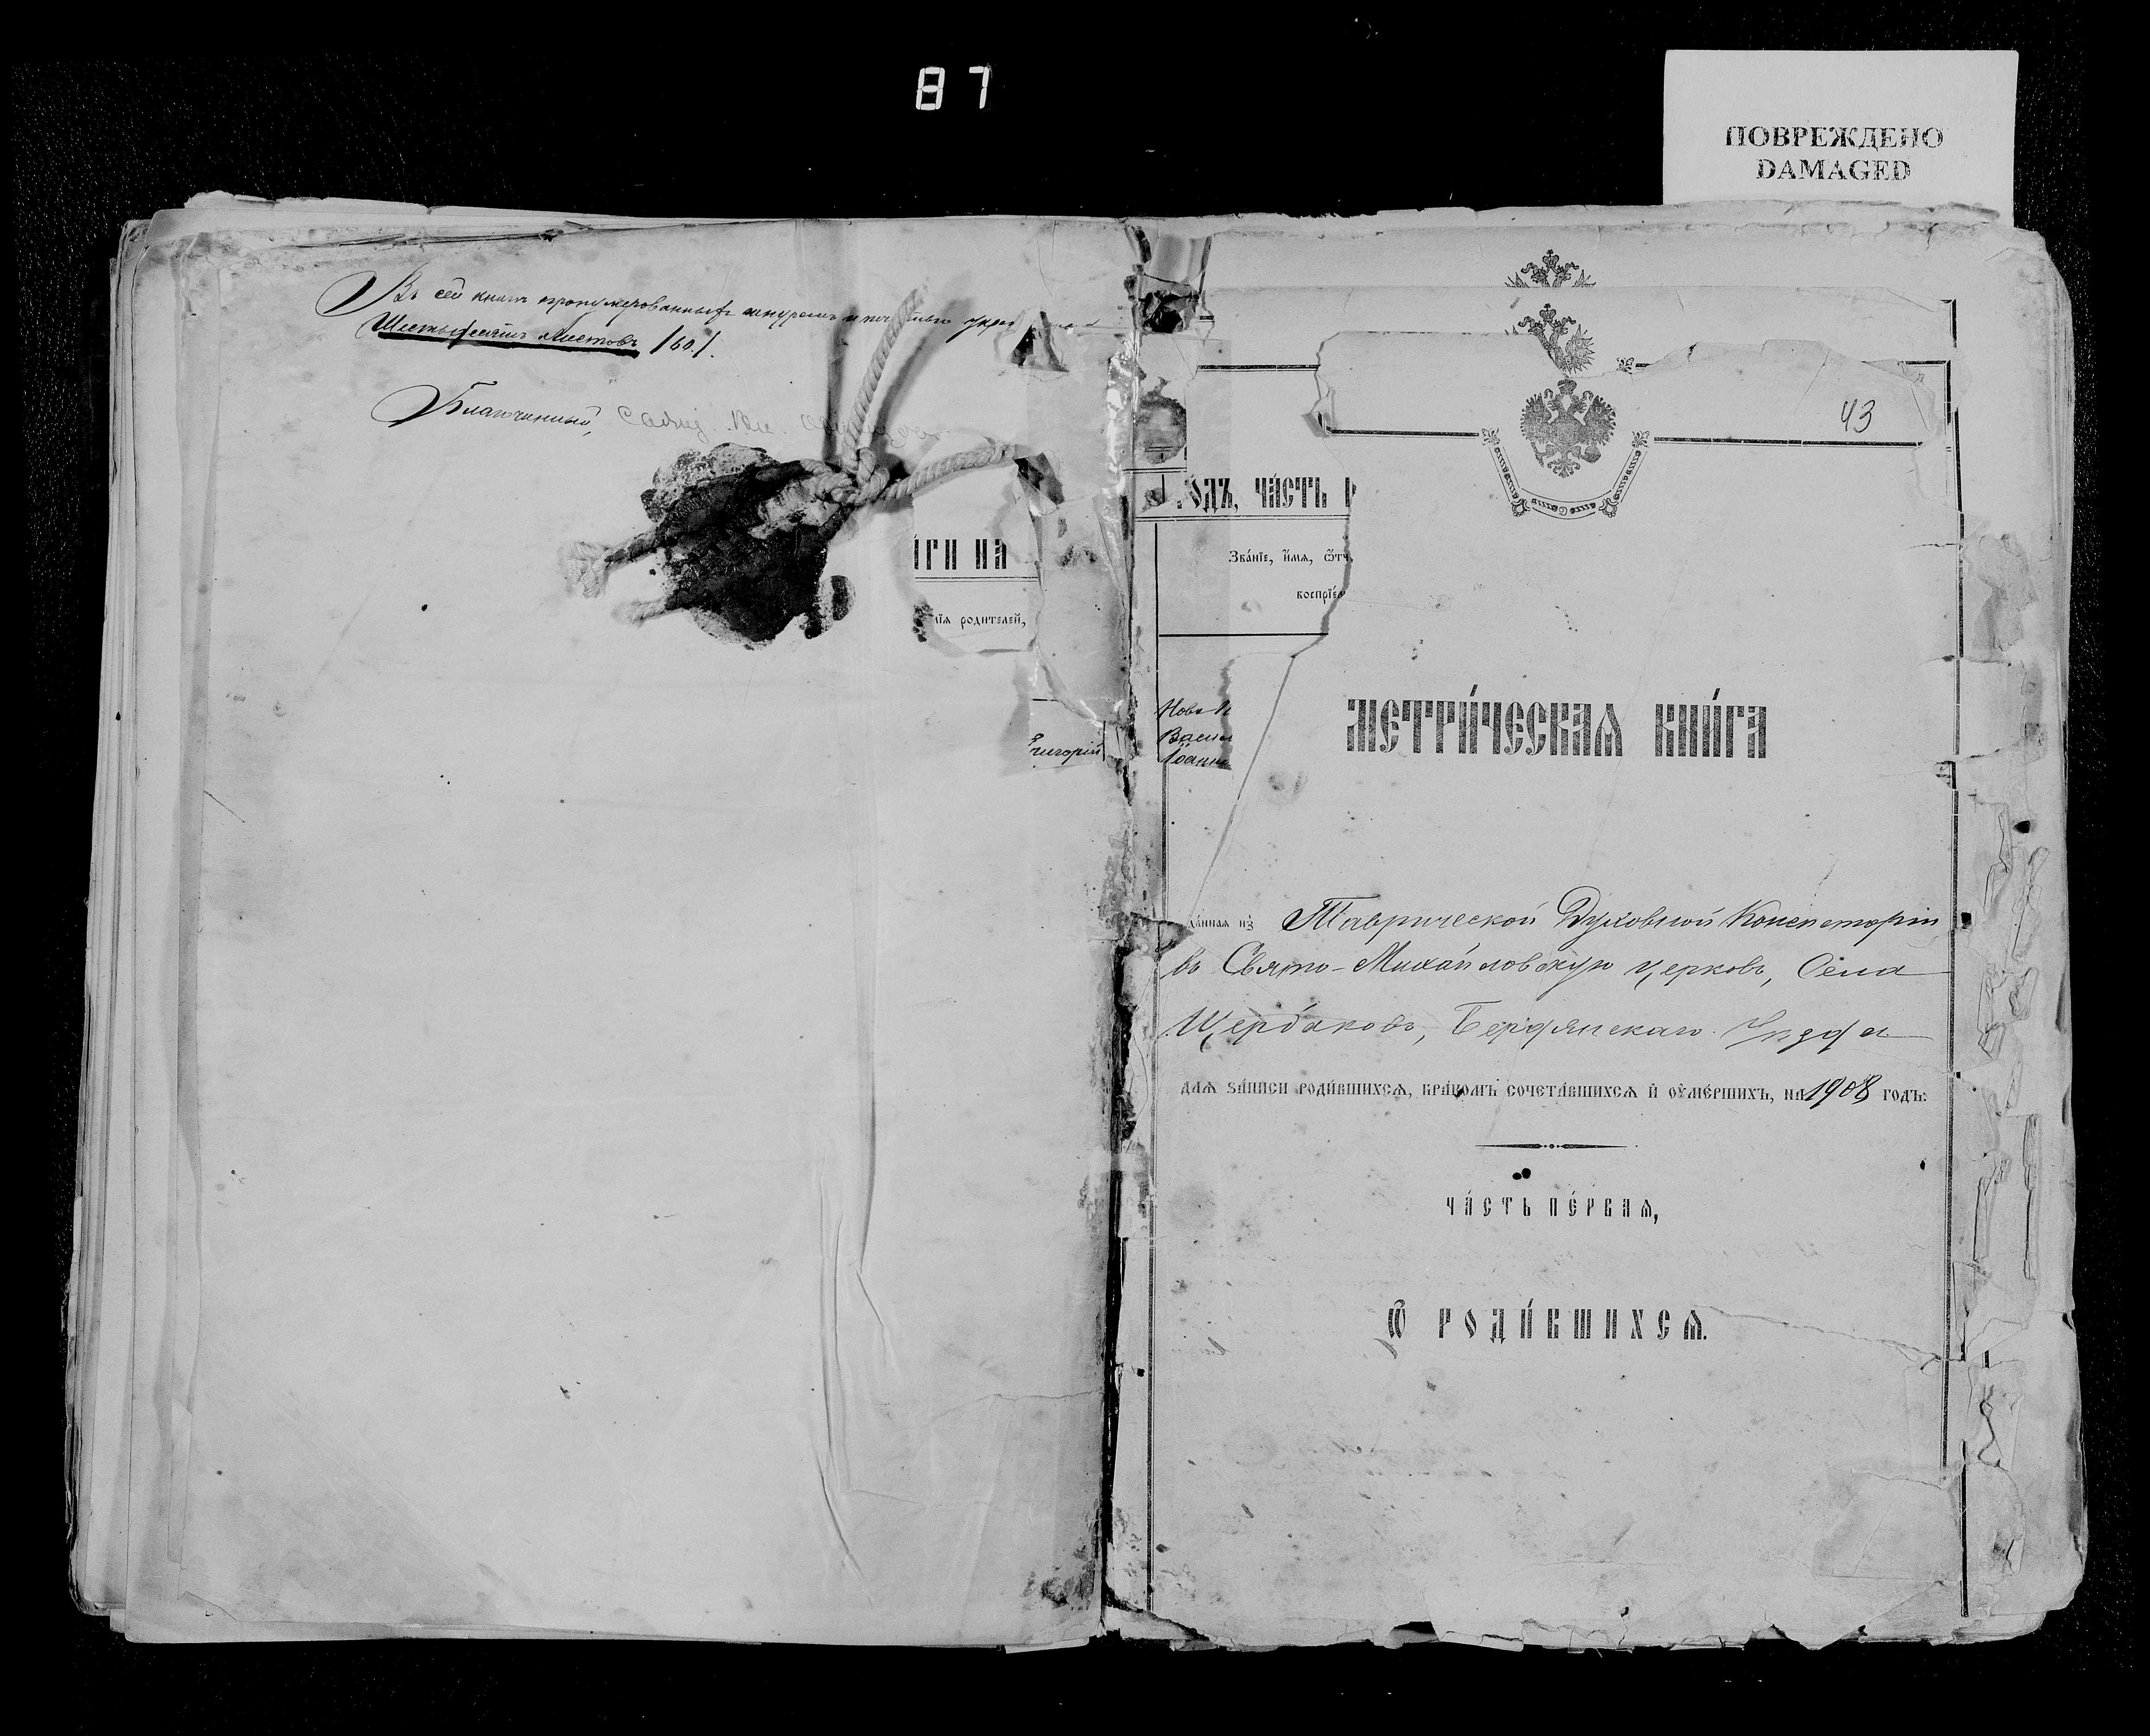 87
ПОВРЕЖДЕНО
DAMAGED
Въ сей книгѣ пронумерованныхъ шнуромъ и печатью
Шестьдесятъ листовъ /60/.
Благочинный,
ІГИ НА
нїѧ родителей,
Григорій
43
ОДЪ, ЧА́СТЬ
Зва́нїе, и҆́мѧ, ѻ҆́тч
воспрїе́м
Ново
Васил
Іоанн
МЕТРИ́ЧЕСКАѦ КНИ́ГА
да́ннаѧ из̾ Таврической Духовной Консисторіи
въ Свято-Михайловскую церковь, Села
Щербаковъ, Бердянскаго Уѣзда
длѧ за́писи роди́вшихсѧ, бра́комъ сочета́вшихсѧ и҆ ᲂу҆ме́ршихъ, на 1908 годъ:
ЧА́СТЬ ПЕ́РВАѦ,
Ѽ РОДИ́ВШИХСѦ.